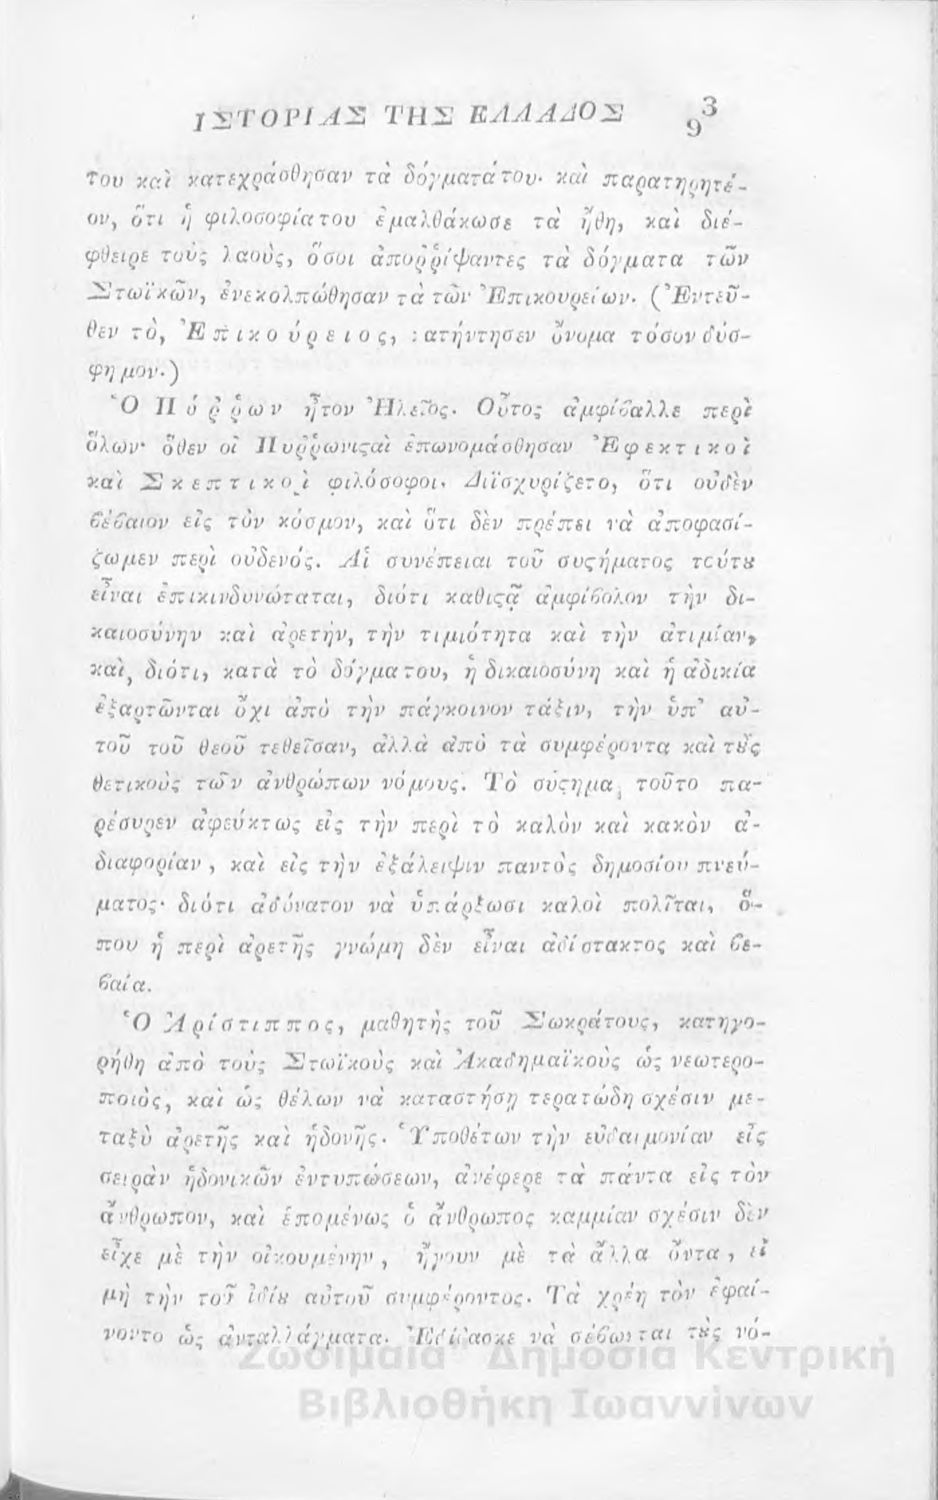 ΙΣΤΟΡΙΑΣ ΤΗΣ ΕΛΛΑΔΟΣ 93
του καὶ κατεχράσθησαν τὰ δόγματάτου· καὶ παρατηρητέ-
ον, ὅτι ἡ φιλοσοφίατου ἐμαλθάκωσε τὰ ἤθη, καὶ διέ-
φθειρε τοὺς λαοὺς, ὅσοι ἀποῤῥίψαντες τὰ δόγματα τῶν
Στωϊκῶν, ἐνεκολπώθησαν τὰ τῶν Ἐπικουρείων. (Ἐντεῦ-
θεν τὸ, Ἐπικούρειος, ἀπήντησεν ὄνομα τόσον δύσ-
φημον.)
Ὁ Πύῤῥων ἦτον Ἠλεῖος. Οὗτος ἀμφίβαλλε περὶ
ὅλων· ὅθεν οἱ Πυῤῥωνιςαὶ ἐπωνομάσθησαν Ἐφεκτικοὶ
καὶ Σκεπτικοὶ φιλόσοφοι. Διϊσχυρίζετο, ὅτι οὐδὲν
βέβαιον εἰς τὸν κόσμον, καὶ ὅτι δὲν πρέπει νὰ ἀποφασί-
ζωμεν περὶ οὐδενός. Αἱ συνέπειαι τοῦ συςήματος τούτȣ
εἶναι ἐπικινδυνώταται, διότι καθιςᾷ ἀμφίβολον τὴν δι-
καιοσύνην καὶ ἀρετὴν, τὴν τιμιότητα καὶ τὴν ἀτιμίαν,
καὶ, διότι, κατὰ τὸ δόγματου, ἡ δικαιοσύνη καὶ ἡ ἀδικία
ἐξαρτῶνται ὄχι ἀπὸ τὴν πάγκοινον τάξιν, τὴν ὑπ' αὐ-
τοῦ τοῦ θεοῦ τεθεῖσαν, ἀλλὰ ἀπὸ τὰ συμφέροντα καὶ τȣ̀ς
θετικοὺς τῶν ἀνθρώπων νόμους. Τὸ σύςημα τοῦτο πα-
ρέσυρεν ἀφεύκτως εἰς τὴν περὶ τὸ καλὸν καὶ κακὸν ἀ-
διαφορίαν, καὶ εἰς τὴν ἐξάλειψιν παντὸς δημοσίου πνεύ-
ματος· διότι ἀδύνατον νὰ ὑπάρξωσι καλοὶ πολῖται, ὅ-
που ἡ περὶ ἀρετῆς γνώμη δὲν εἶναι ἀδίστακτος καὶ βε-
βαία.
Ὁ Ἀρίστιππος, μαθητὴς τοῦ Σωκράτους, κατηγο-
ρήθη ἀπὸ τοὺς Στωϊκοὺς καὶ Ἀκαδημαϊκοὺς ὡς νεωτερο-
ποιὸς, καὶ ὡς θέλων νὰ καταστήσῃ τερατώδη σχέσιν με-
ταξὺ ἀρετῆς καὶ ἡδονῆς. Ὑποθέτων τὴν εὐδαιμονίαν εἰς
σειρὰν ἡδονικῶν ἐντυπώσεων, ἀνέφερε τὰ πάντα εἰς τὸν
ἄνθρωπον, καὶ ἑπομένως ὁ ἄνθρωπος καμμίαν σχέσιν δὲν
εἶχε μὲ τὴν οἰκουμένην, ἤγουν μὲ τὰ ἄλλα ὄντα, εἰ
μὴ τὴν τοῦ ἰδίȣ αὑτοῦ συμφέροντος. Τὰ χρέη τὸν ἐφαί-
νοντο ὡς ἀνταλλάγματα. Ἐδίδασκε νὰ σέβωνται τȣ̀ς νό-
Ζωσιμαία Δημόσια Κεντρική
Βιβλιοθήκη Ιωαννίνων